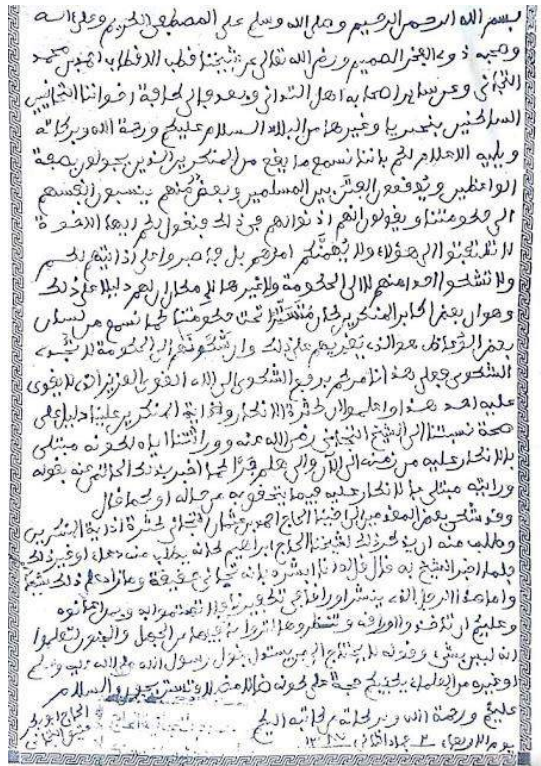 بسم الله الرحمن الرحيم وصلى الله وسلم على المصطفى الكريم وعلى آله
وصحبه ذوى الفخر الصميم ورضى الله تعالى عن شيخنا قطب الاقطاب احمد بن محمد
التجانى وعن ساير اصحابه اهل التدانى وبعد فإلى كافة اخواننا التجانيين
الساكنين بنجيريا وغيرها من البلاد السلام عليكم ورحمة الله وبركاته
ويليه الاعلام لكم باننا نسمع ما يقع من المنكرين الذين يجولون بصفة
الواعظين ويوقعون الفتن بين المسلمين وبعض منهم ينسبون انفسهم
الى حكومتنا ويقولون انهم اذنوا لهم فى ذلك فنقول لكم ايها الاخوة
لا تلتفتوا الى هؤلاء ولا يهمنكم امرهم بل فاصبروا على اذايتهم لكم
ولا تشكوا احدا منهم لا الى الحكومة ولا غيرها لئلا يكون لهم دليلا على ذلك
وهو ان بعض اكابر المنكرين كان متسترا تحت حكومتنا كما نسمع من لسان
بعض الوعاظ هو الذى يغريهم على ذلك وان شكوتهم الى الحكومة لا تجدى
الشكوى فعلى هذا انا مركم برفع الشكوى الى الله القوى العزيز الذى لا يقوى
عليه احد هذا واعلموا ان كثرة الانكار واذاية المنكرين علينا دليل على
صحة نسبتنا الى الشيخ التجانى رضى الله عنه ووراثتنا اياه لكونه مبتلى
بالانكار عليه من زمنه الى الآن والى هلم جرا كما اخبر بذلك الحاتمى عنه بقوله
ورايته مبتلى بالانكار عليه فيما يتحقق به من حاله او كما قال
وقد شكى بعض المقدمين الى اخينا الحاج احمد بن عثمان التجانى كثرة اذاية المنكرين
وطلب منه ان يذكر ذلك لشيخنا الحاج ابراهيم كانه يطلب منه دعاء او غير ذلك
فلما اخبر الشيخ به قال قل له انا ابشره بانه تجانى حقيقة وما زاد على ذلك شيئا
واما هذا الرجل الذى ينشر اوراقا فى تكفيرنا فلا تهتموا به وبمن اعانوه
وعليكم ان تاخذوا اوراقه وتنظروها لتروا ما فيها من الجهل والجنون لتعلموا
انه ليس بشىء وقوله لا يحتاج الى من يستدل بقول رسول الله صلى الله عليه وسلم
او غيره من العلماء يكفيكم حجة على كونه ضالا مضلا والسلام
عليكم ورحمة الله وبركاته من كاتبه اليكم
الحاج ابوبكر
عتيق التجانى
يوم الاربعاء